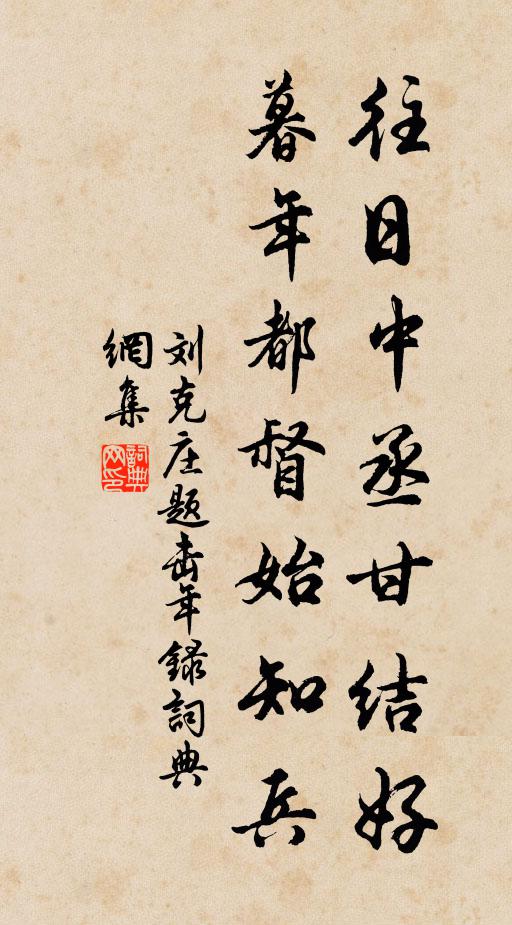 往日中丞甘结好
暮年都督始知兵
刘克庄题壶年录詞典
網集
詞典
网印